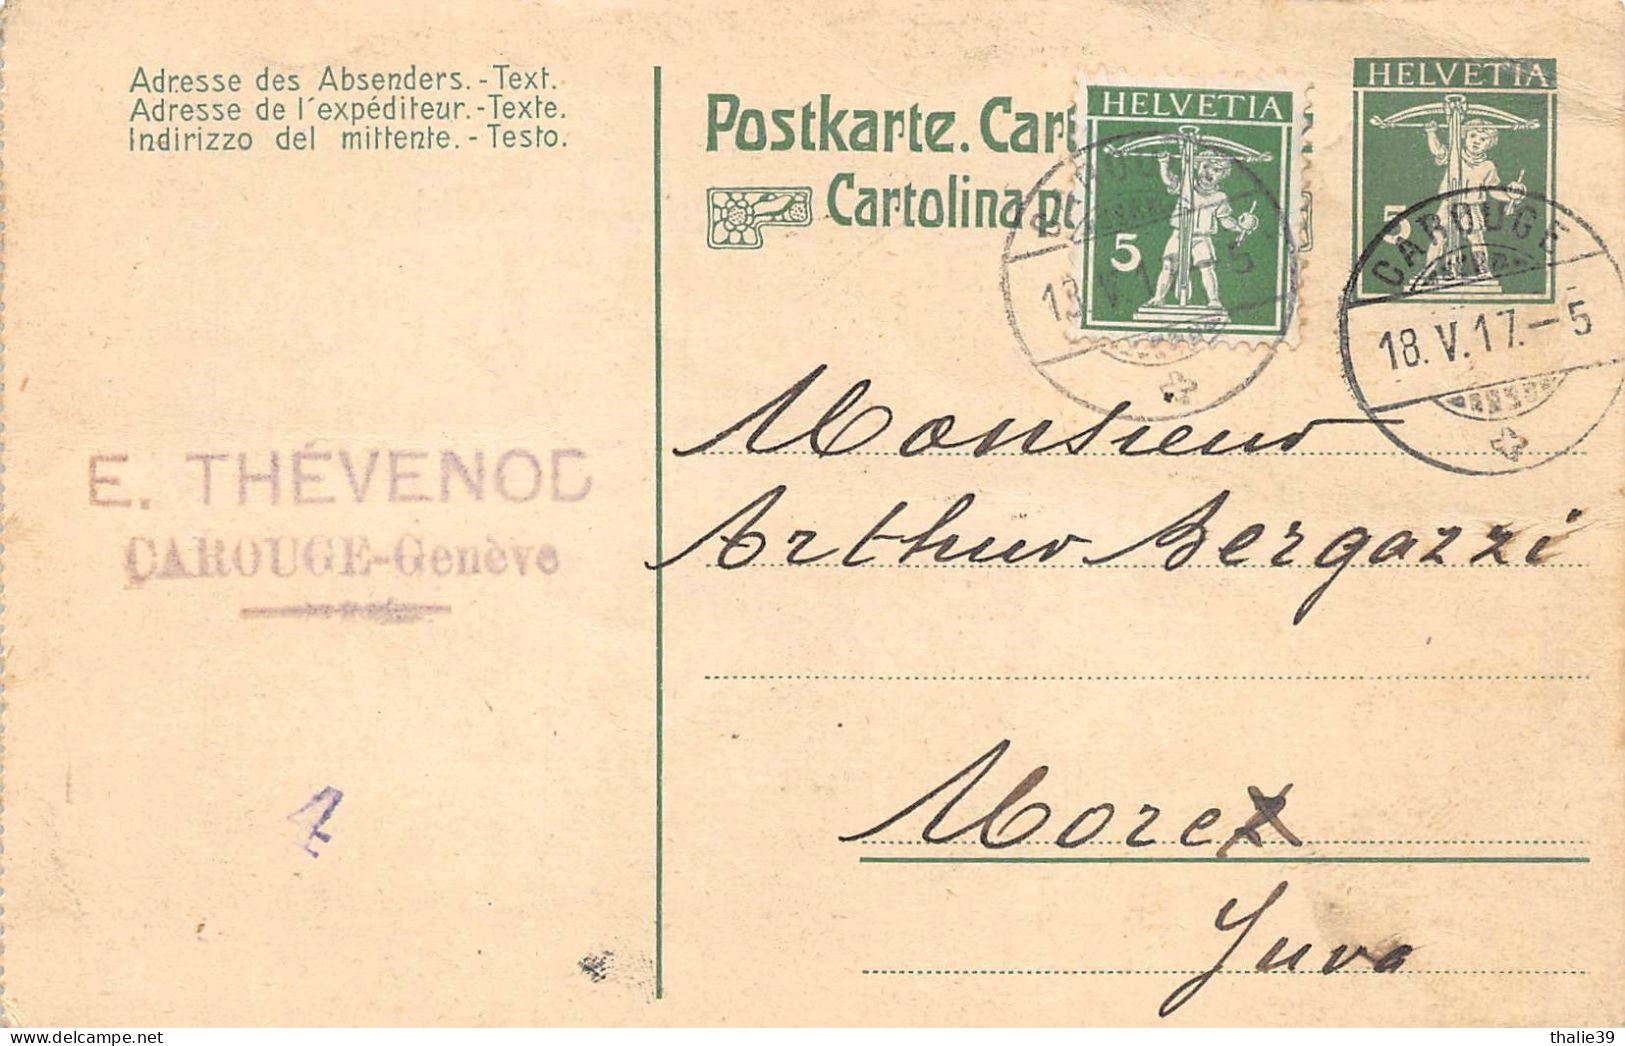 Adresse des Absenders.-Text.
Adresse de l'expéditeur.-Texte.
Indirizzo del mittente.-Testo.
Postkarte. Cart
Cartolina
HELVETIA
5
HELVETIA
5
CAROUGE
18.V.17.-5
E. THÉVENOD
CAROUGE-Genève
Monsieur
Arthur Bergazzi
Morez
Jura
delcampe.net
thalie39